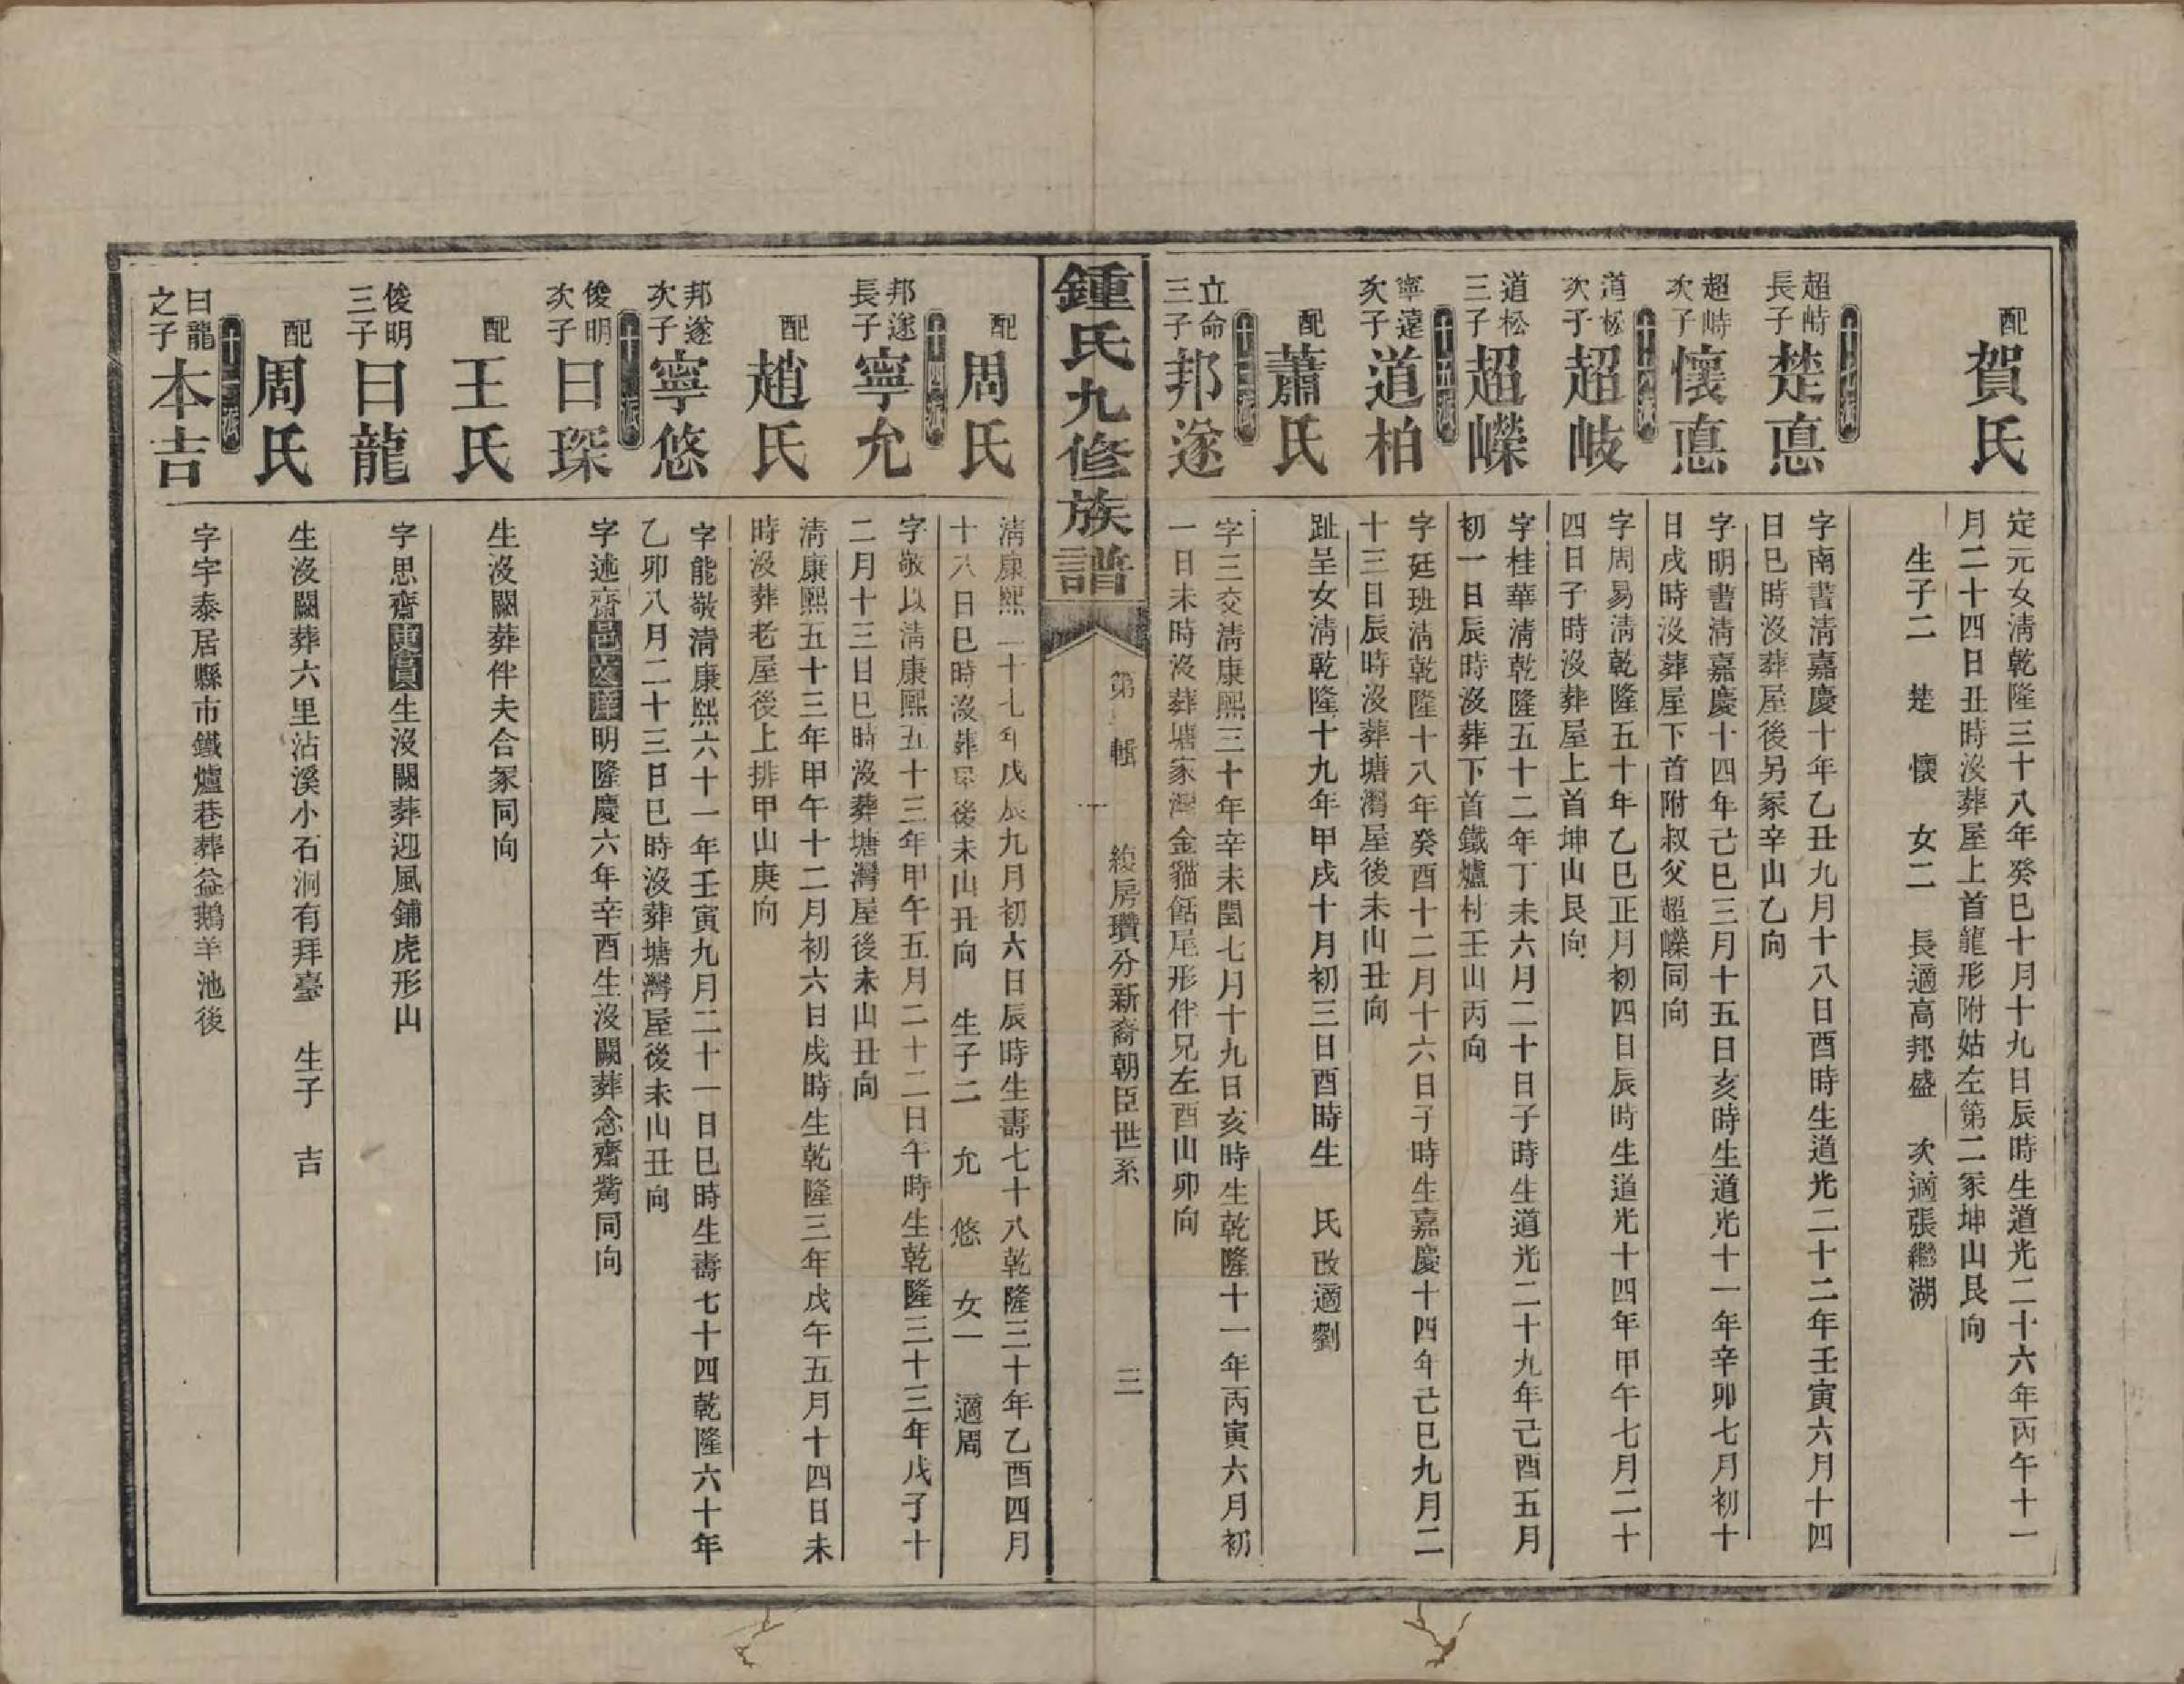 配
賀氏
定元女淸乾隆三十八年癸巳十月十九日辰時生道光二十六年丙午十一
月二十四日丑時沒葬屋上首龍形附姑左第二冢坤山艮向
生子二　楚　懷　女二　長適高邦盛　次適張繼湖
十七派
超峙
長子
楚惪
字南書淸嘉慶十年乙丑九月十八日酉時生道光二十二年壬寅六月十四
日巳時沒葬屋後另冢辛山乙向
超峙
次子
懷惪
字明書淸嘉慶十四年己巳三月十五日亥時生道光十一年辛卯七月初十
日戌時沒葬屋下首附叔父超嶸同向
十六派
道松
次子
超岐
字周易淸乾隆五十年乙巳正月初四日辰時生道光十四年甲午七月二十
四日子時沒葬屋上首坤山艮向
道松
三子
超嶸
字桂華淸乾隆五十二年丁未六月二十日子時生道光二十九年己酉五月
初一日辰時沒葬下首鐵爐村壬山丙向
十五派
寧遠
次子
道柏
字廷班淸乾隆十八年癸酉十二月十六日子時生嘉慶十四年己巳九月二
十三日辰時沒葬塘灣屋後未山丑向
配
蕭氏
趾呈女淸乾隆十九年甲戌十月初三日酉時生　氏改適劉
十三派
立命
三子
邦遂
字三交淸康熙三十年辛未閏七月十九日亥時生乾隆十一年丙寅六月初
一日未時沒葬塘家灣金貓餂尾形伴兄左酉山卯向
鍾氏九修族譜
第　輯　綾房瓚分新裔朝臣世系
三
配
周氏
淸康熙二十七年戊辰九月初六日辰時生壽七十八乾隆三十年乙酉四月
十八日巳時沒葬屋後未山丑向　生子二　允　悠　女一　適周
十四派
邦遂
長子
寧允
字敬以淸康熙五十三年甲午五月二十二日午時生乾隆三十三年戊子十
二月十三日巳時沒葬塘灣屋後未山丑向
配
趙氏
淸康熙五十三年甲午十二月初六日戌時生乾隆三年戊午五月十四日未
時沒葬老屋後上排甲山庚向
邦遂
次子
寧悠
字能敬淸康熙六十一年壬寅九月二十一日巳時生壽七十四乾隆六十年
乙卯八月二十三日巳時沒葬塘灣屋後未山丑向
俊明
次子
曰琛
字述齋邑文庠明隆慶六年辛酉生沒闕葬念齋嘴同向
配
王氏
生沒闕葬伴夫合冢同向
俊明
三子
曰龍
字思齋東會員生沒闕葬迎風鋪虎形山
配
周氏
生沒闕葬六里沾溪小石洞有拜臺　生子　吉
十二派
曰龍
之子
本吉
字宇泰居縣市鐵爐巷葬益鵝羊池後